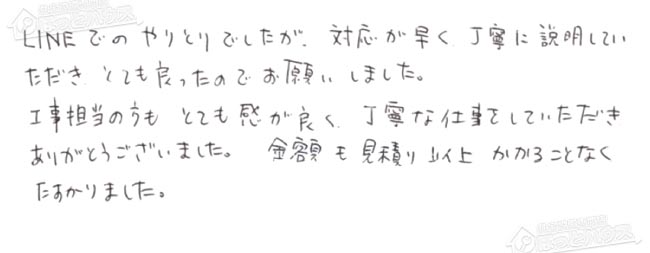 LINEでのやりとりでしたが、対応が早く、丁寧に説明してい
ただき、とても良ったのでお願いしました。
工事担当のうも とても感が良く、丁寧な仕事をしていただき
ありがとうございました。 金額も見積り以上かかることなく
たすかりました。